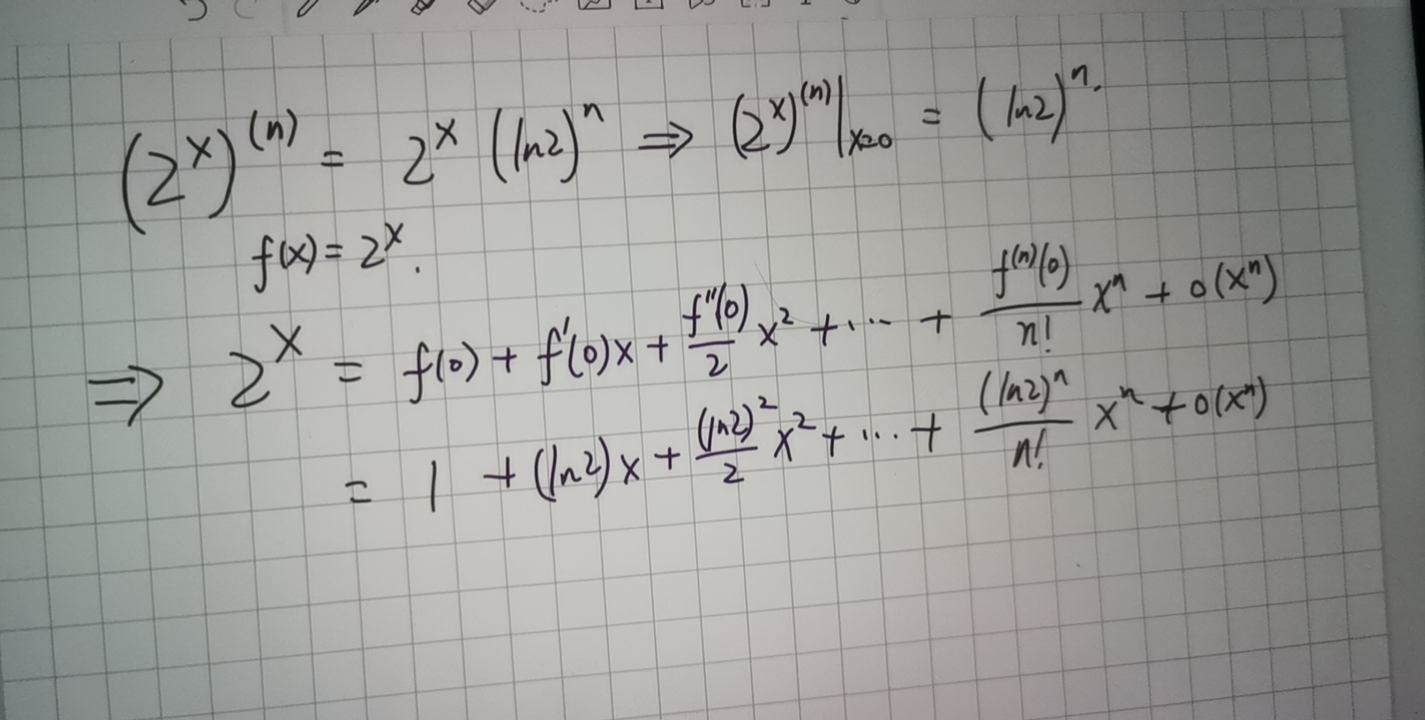 (2^x)^(n) = 2^x (ln2)^n ⇒ (2^x)^(n)|_{x=0} = (ln2)^n.
f(x) = 2^x.
⇒ 2^x = f(0) + f'(0)x + f''(0)/2 x^2 + ... + f^(n)(0)/n! x^n + o(x^n)
= 1 + (ln2)x + (ln2)^2/2 x^2 + ... + (ln2)^n/n! x^n + o(x^n)